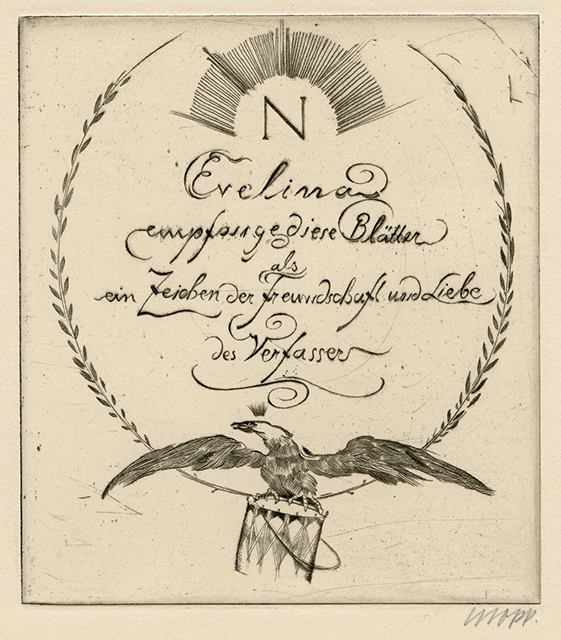 N
Evelina
empfange diese Blätter
als
ein Zeichen der Freundschaft und Liebe
des Verfassers
Mopp.